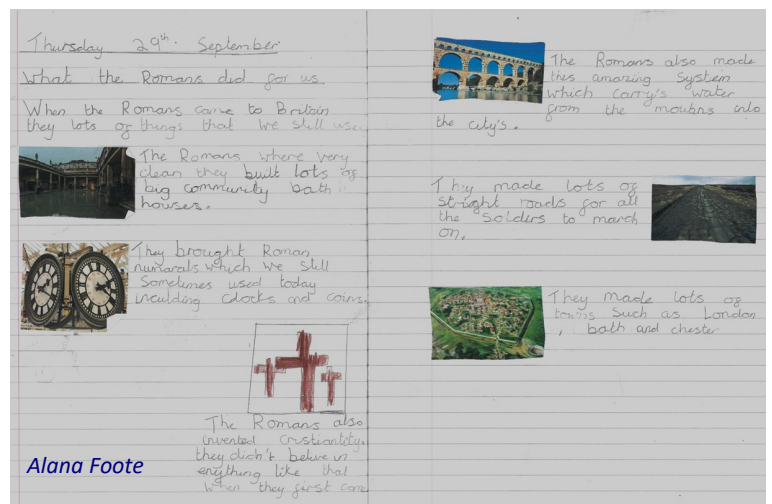 Thursday 29th. September
What the Romans did for us
When the Romans came to Britain
they lots of things that we still use.
The Romans where very
clean they built lots of
big community bath
houses.
They brought Roman
numarals which we still
Sometimes used today
inculding Clocks and coins.
The Romans also
invented Cristiantity.
they didn't beleve in
enything like that
when they first came
Alana Foote
The Romans also made
this amazing System
which carry's water
from the moutins into
the city's.
They made lots of
stright roads for all
the Solders to march
on.
They made lots of
towns such as London
, bath and chester